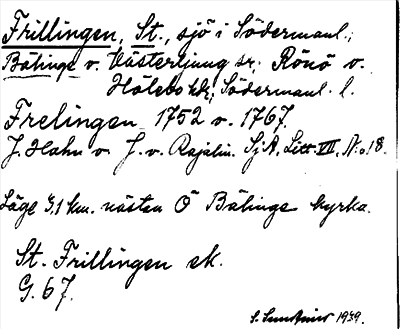 Frillingen, St., sjö i Södermanl.;
Bälinge o. Västerljung sr; Rönö o.
Hölebo hdr; Södermanl. l.
Frelingen 1752 o. 1767.
J. Hahn o. J. v. Rajalin. Sj.A. Litt VII, No. 18.
Läge 3,1 km. nästan Ö Bälinge kyrka.
St. Frillingen ek.
G. 67.
S. 1939.